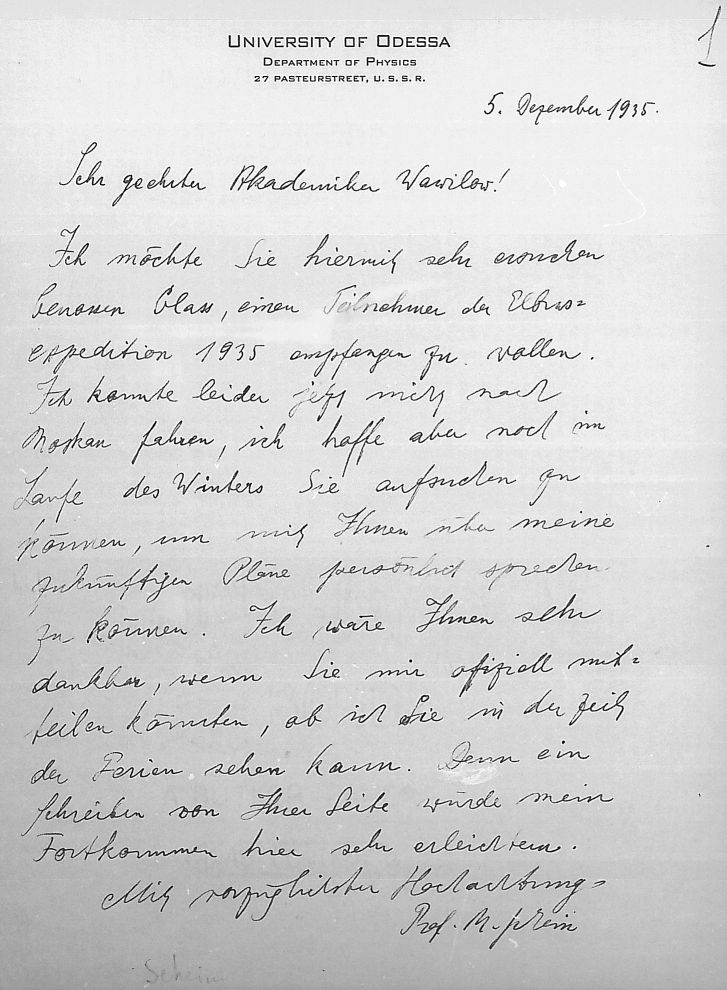 1
UNIVERSITY OF ODESSA
DEPARTMENT OF PHYSICS
27 PASTEURSTREET, U.S.S.R.
5. Dezember 1935.
Sehr geehrter Akademiker Wawilow!
Ich möchte Sie hiermit sehr ersuchen
Genossen Glass, einen Teilnehmer der Elbrus-
expedition 1935 empfangen zu wollen.
Ich konnte leider jetzt nicht nach
Moskau fahren, ich hoffe aber noch im
Laufe des Winters Sie aufsuchen zu
können, um mit Ihnen über meine
zukünftigen Pläne persönlich sprechen
zu können. Ich wäre Ihnen sehr
dankbar, wenn Sie mir offiziell mit-
teilen könnten, ob ich Sie in der Zeit
der Ferien sehen kann. Denn ein
Schreiben von Ihrer Seite würde mein
Fortkommen hier sehr erleichtern.
Mit vorzüglichster Hochachtung
Prof.